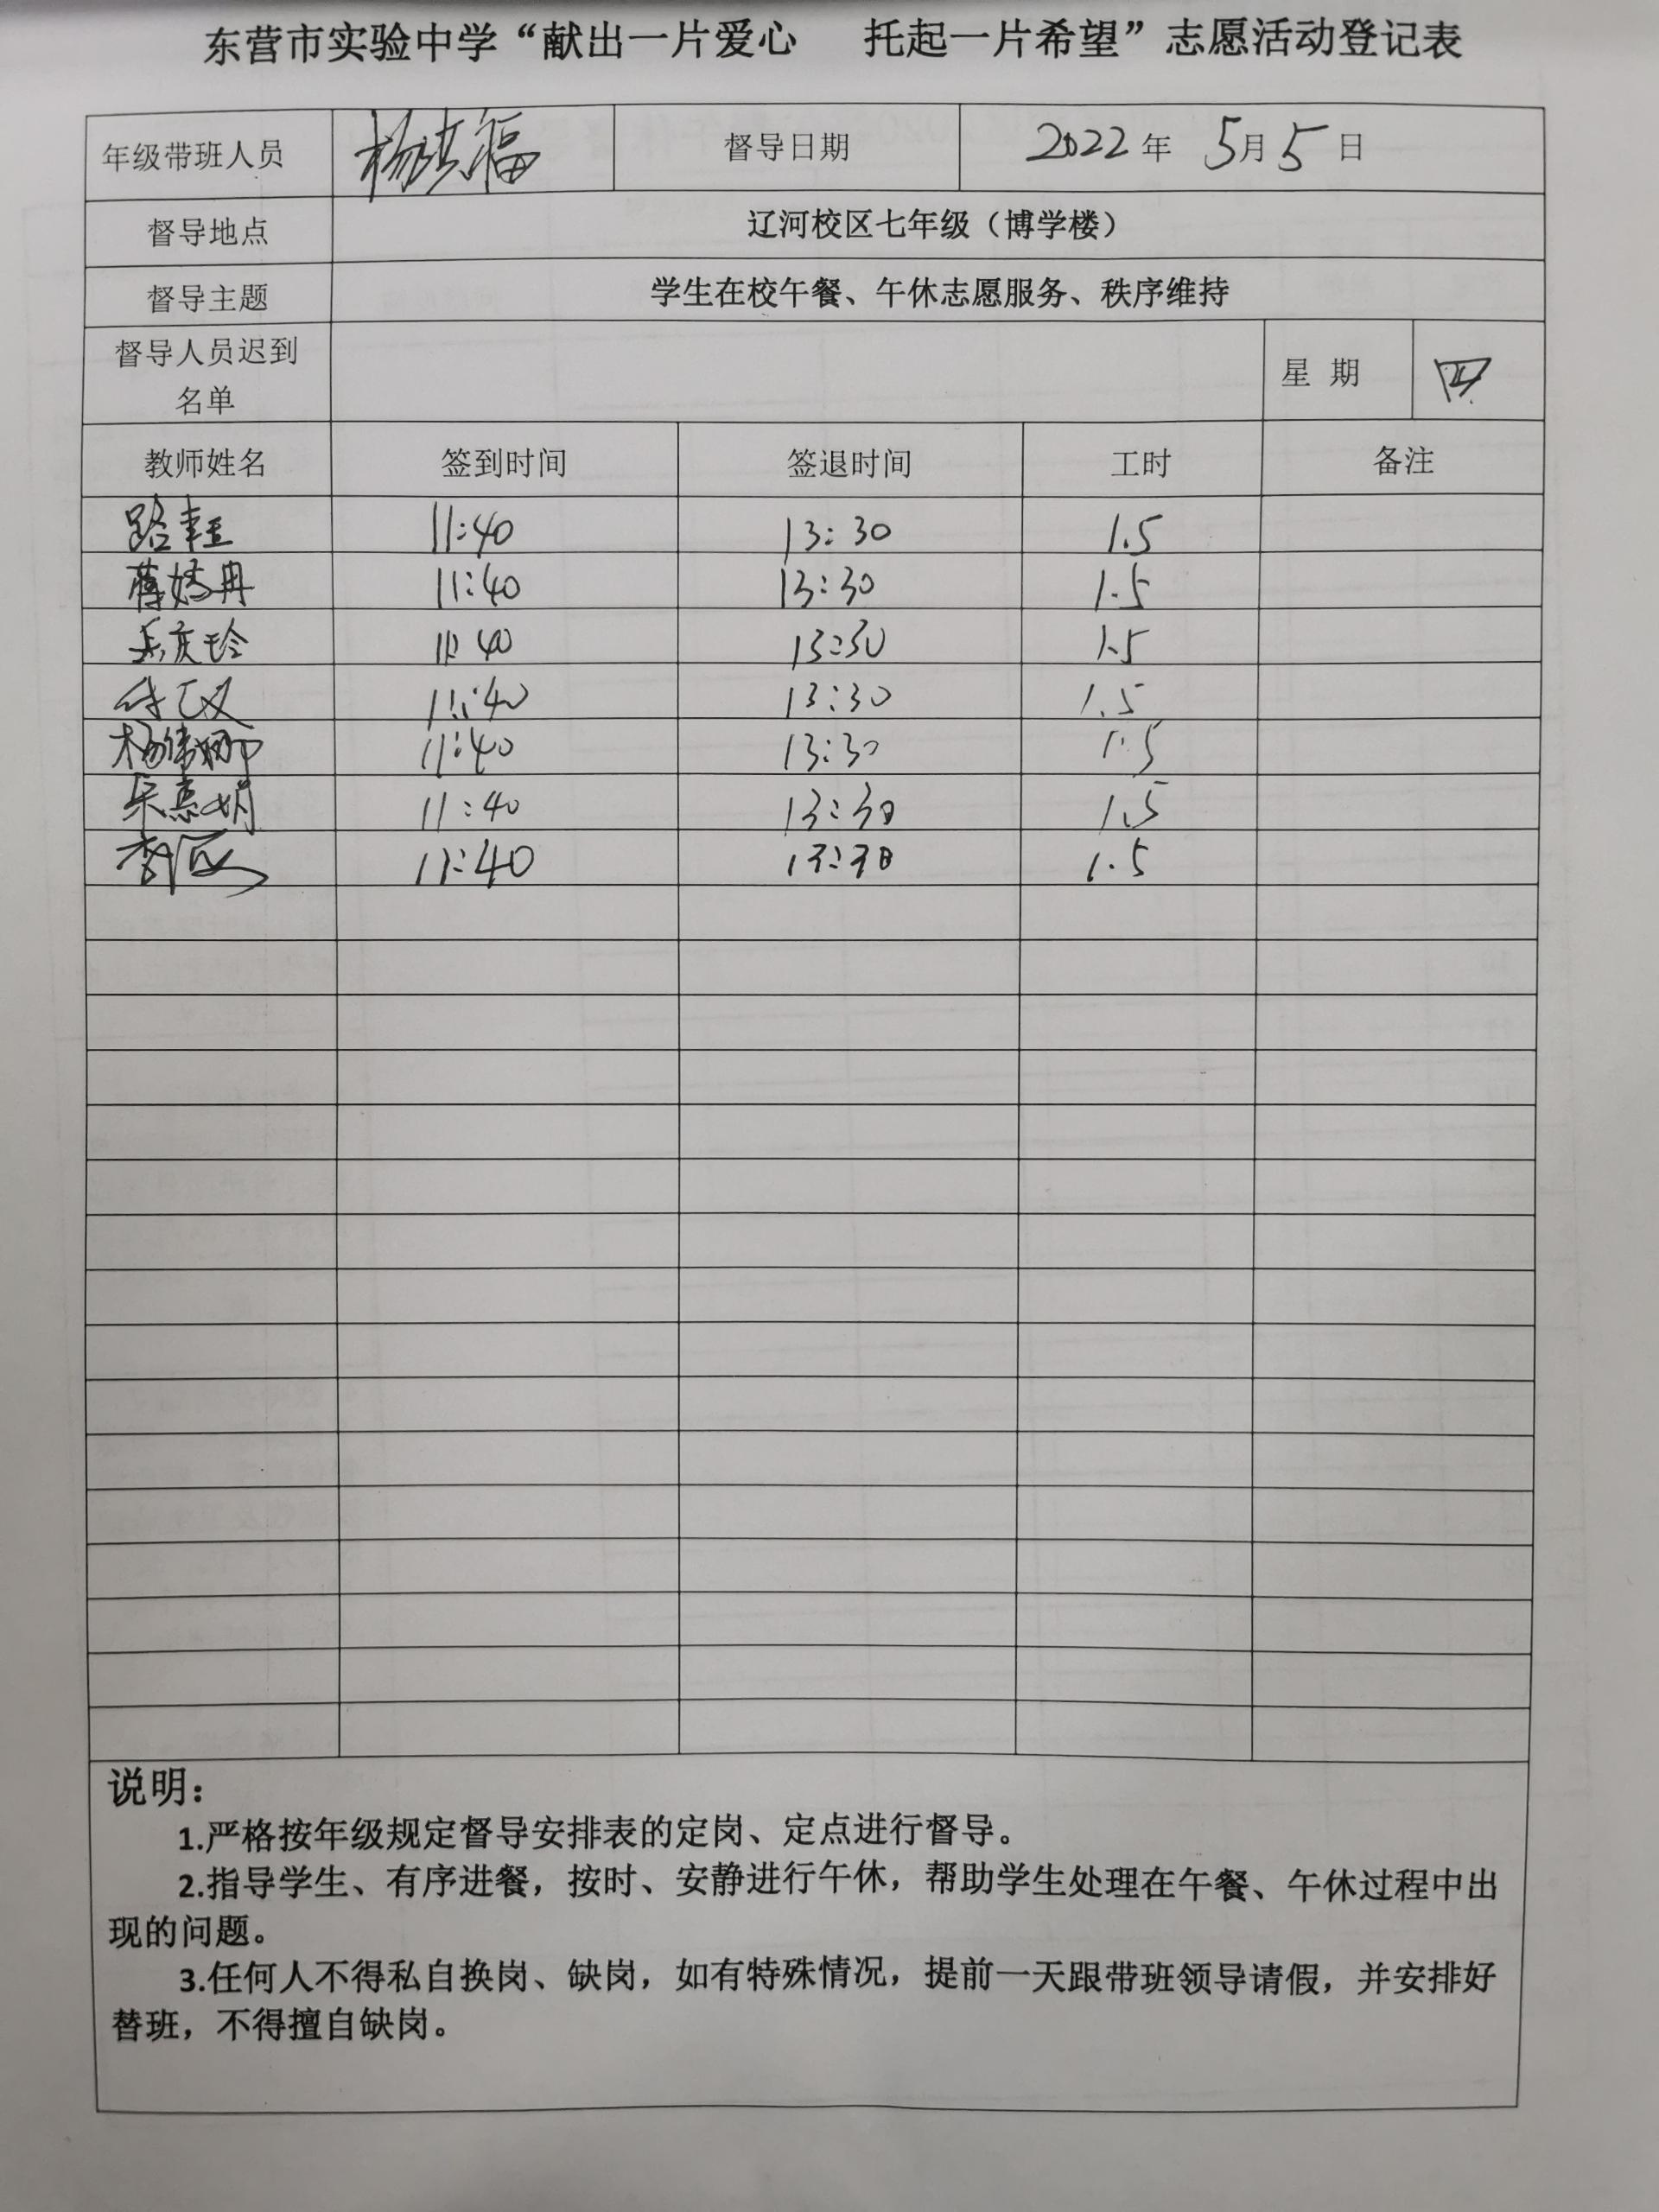 东营市实验中学“献出一片爱心 托起一片希望”志愿活动登记表
年级带班人员 督导日期 2022年 5月5日
督导地点 辽河校区七年级（博学楼）
督导主题 学生在校午餐、午休志愿服务、秩序维持
督导人员迟到
名单 星 期 四
教师姓名 签到时间 签退时间 工时 备注
11:40 13:30 1.5
11:40 13:30 1.5
11:40 13:30 1.5
11:40 13:30 1.5
杨伟娜 11:40 13:30 1.5
11:40 13:30 1.5
11:40 13:30 1.5
说明：
1.严格按年级规定督导安排表的定岗、定点进行督导。
2.指导学生、有序进餐，按时、安静进行午休，帮助学生处理在午餐、午休过程中出
现的问题。
3.任何人不得私自换岗、缺岗，如有特殊情况，提前一天跟带班领导请假，并安排好
替班，不得擅自缺岗。